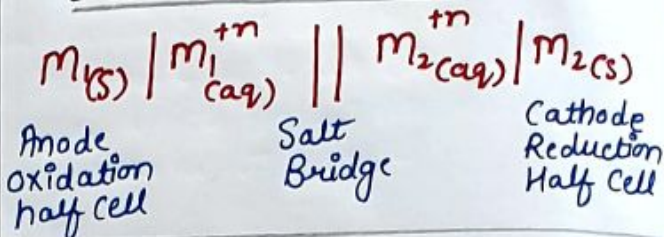 M₁(s) | M₁⁺ⁿ(aq) || M₂⁺ⁿ(aq) | M₂(s)
Anode
oxidation
half cell
Salt
Bridge
Cathode
Reduction
Half Cell